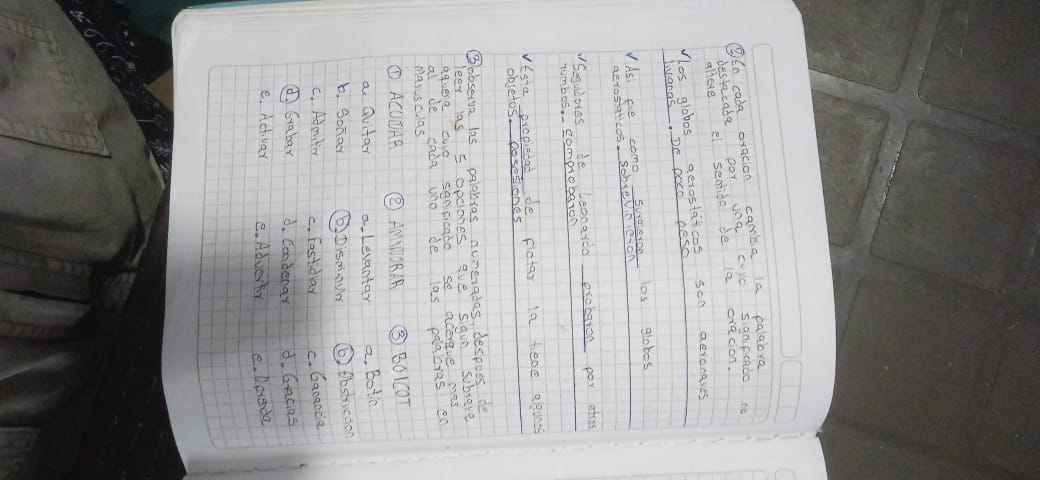 ② En cada oracion cambia la palabra
destacada por una cuyo significado no
altere el sentido de la oracion.
✓ los globos aerostáticos son aeronaves
livianas. De poco peso
✓ Asi fue como surgieron los globos
aerostáticos. Sobrevinieron
✓ Seguidores de Leonardo probaron por otros
rumbos. - Comprobaron
✓ Esta propiedad de flotar la tiene algunos
objetos. posesiones
③ observa las palabras numeradas despues de
leer las 5 opciones que sigun subraya
aquella cuyo sanificado se acerque mas
al de cada uno de las palabras en
mayusculas
① ACUÑAR ② AMINORAR ③ BOICOT
a. Quitar a. Levantar a. Botín
b. Soñar b. Disminuir b. Obstruccion
c. Admitir c. Fastidiar c. Ganancia
d. Grabar d. Condenar d. Gracias
e. Activar e. Advertir e.